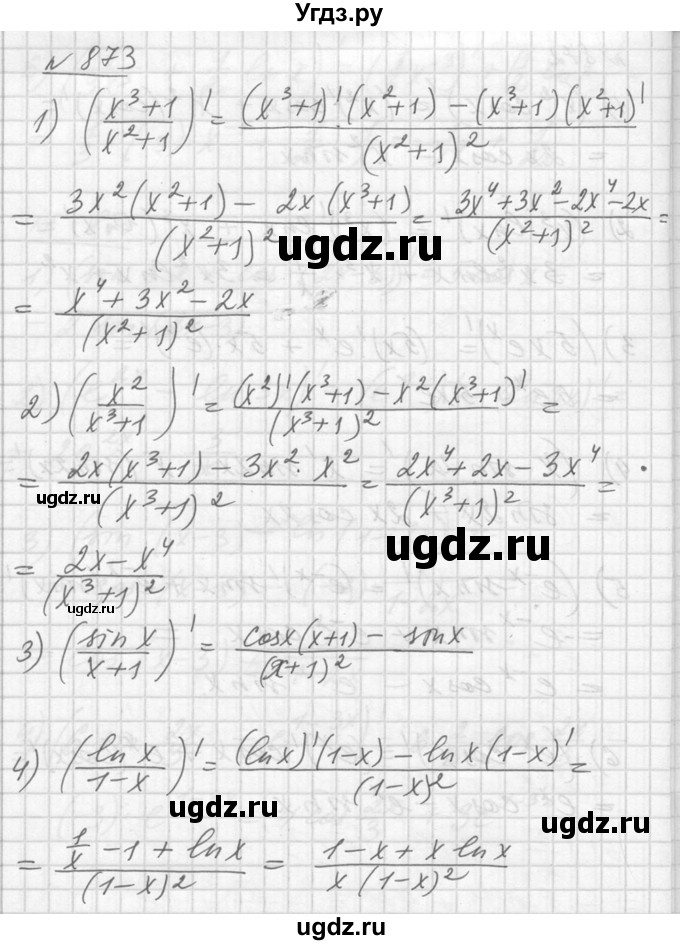 Угдз.ру
N 873
1) ((x³+1)/(x²+1))' = ((x³+1)'(x²+1) - (x³+1)(x²+1)')/(x²+1)²
= (3x²(x²+1) - 2x(x³+1))/(x²+1)² = (3x⁴+3x²-2x⁴-2x)/(x²+1)² =
ugdz.ru
= (x⁴+3x²-2x)/(x²+1)²
2) (x²/(x³+1))' = ((x²)'(x³+1) - x²(x³+1)')/(x³+1)² =
= (2x(x³+1) - 3x²·x²)/(x³+1)² = (2x⁴+2x-3x⁴)/(x³+1)² =
ugdz.ru
ugdz.ru
= (2x-x⁴)/(x³+1)²
ugdz.ru
3) (sin x/(x+1))' = (cosx(x+1) - sinx)/(x+1)²
4) (ln x/(1-x))' = ((lnx)'(1-x) - lnx(1-x)')/(1-x)² =
ugdz.ru
ugdz.ru
= (1/x - 1 + lnx)/(1-x)² = (1-x+x lnx)/(x(1-x)²)
ugdz.ru